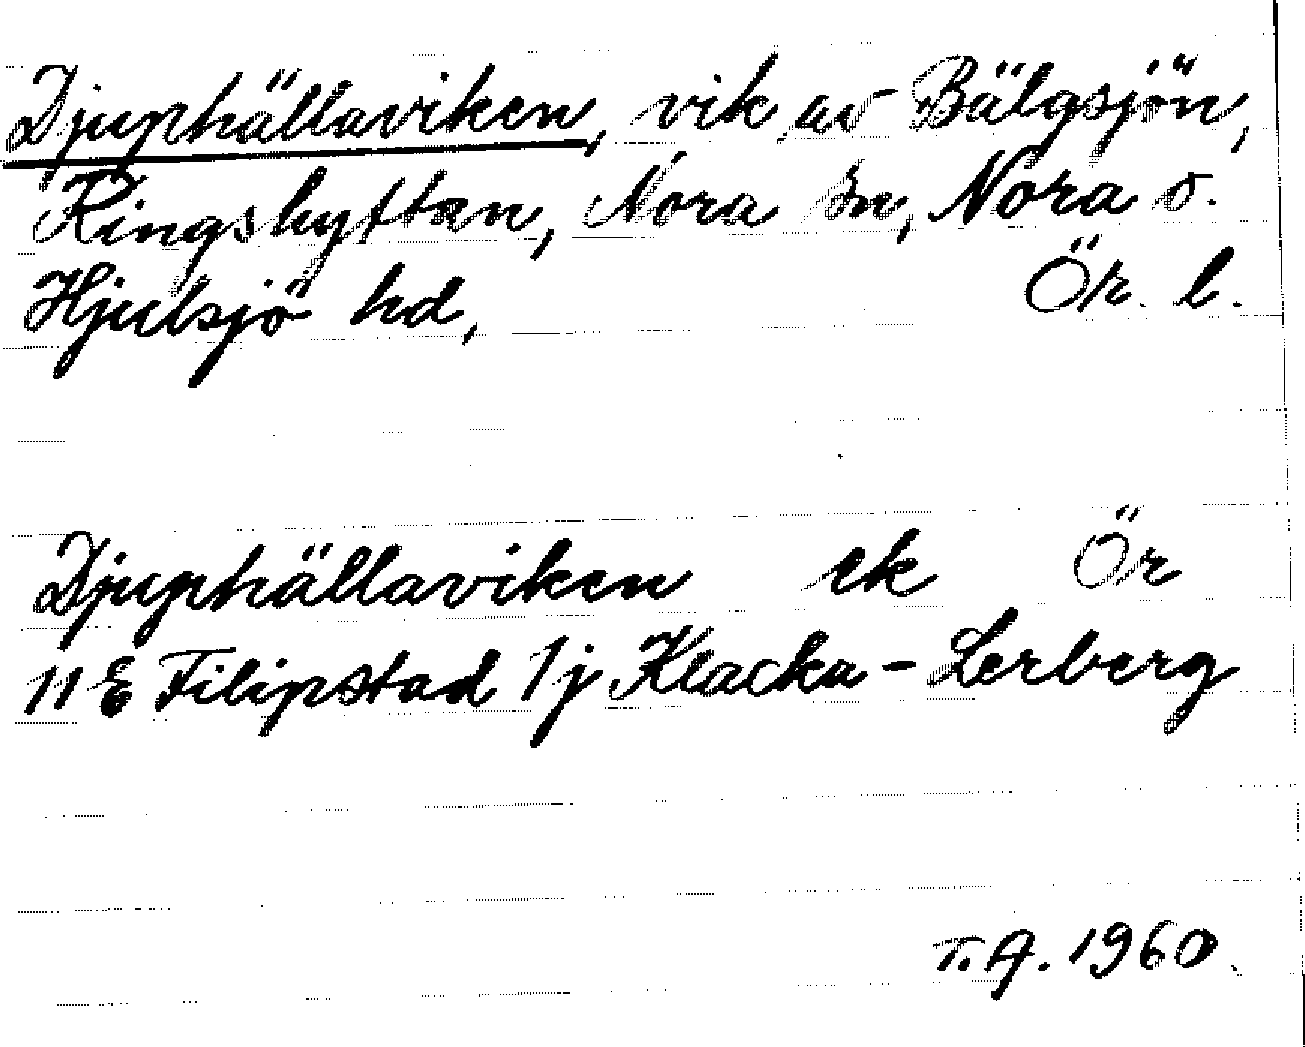 Djuphällaviken, vik av Bälgsjön,
Ringshyttan, Nora sn, Nora o.
Hjulsjö hd, Ör. l.
Djuphällaviken ek Ör
11 E Filipstad 1j Klacka-Lerberg
T.A. 1960.